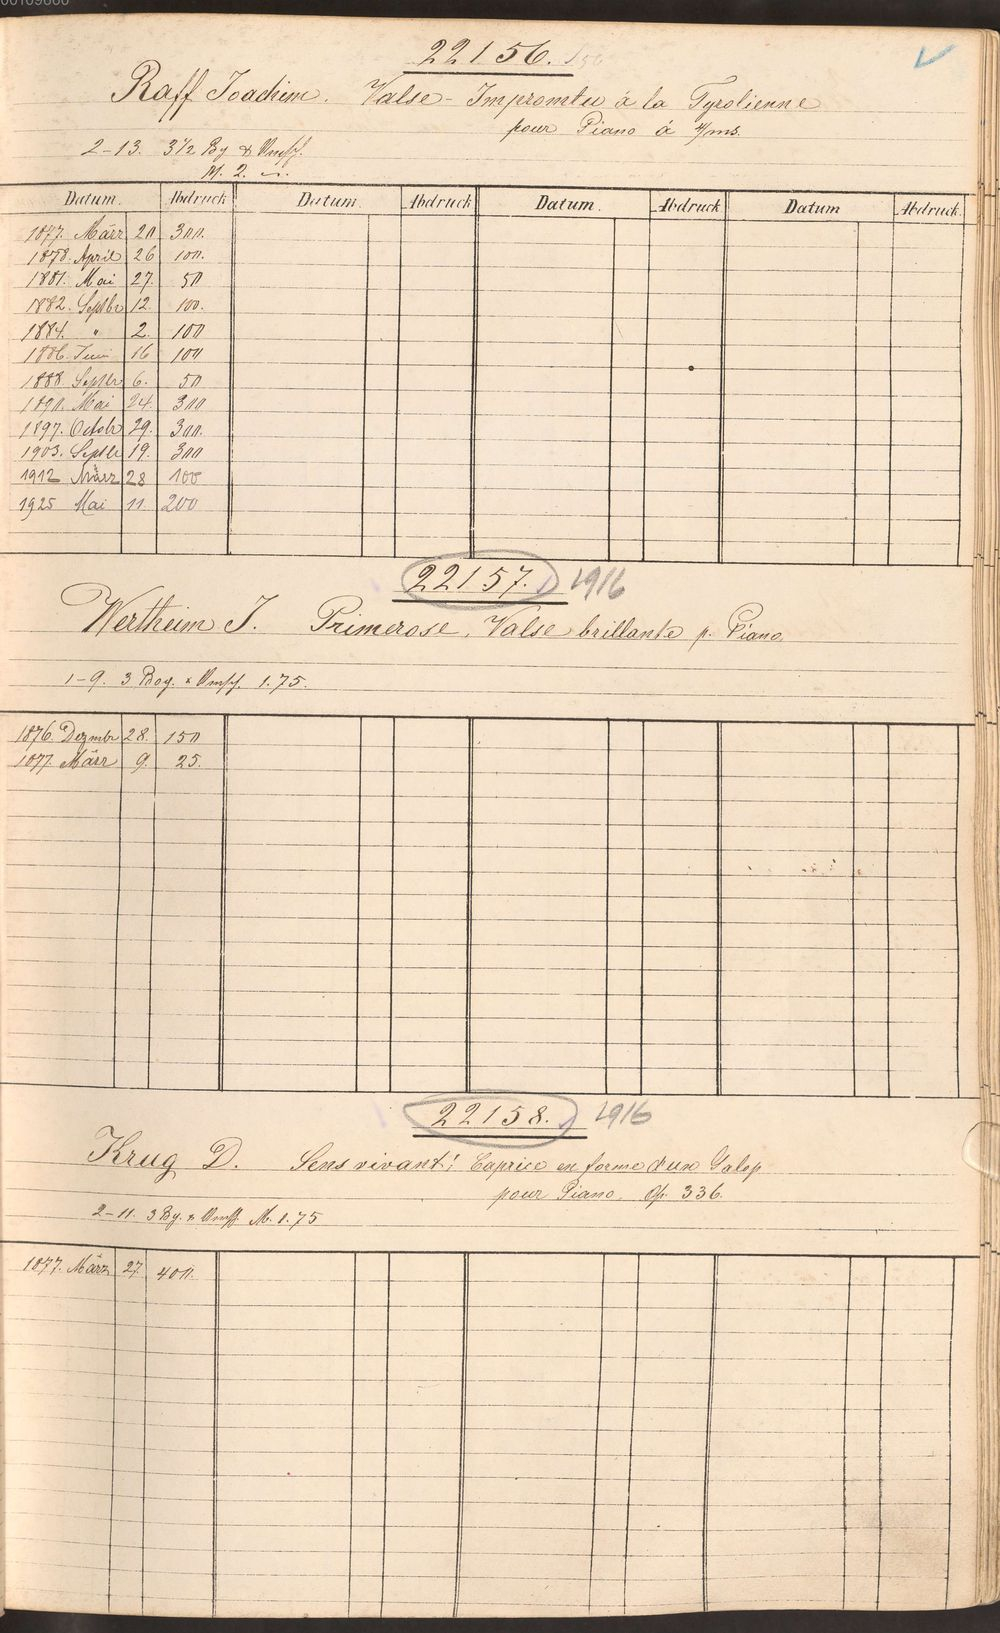 22156.
Raff Joachim. Valse-Impromtu á la Tyrolienne
pour Piano á 4/ms.
2-13. 3 1/2 Bg & Umsch.
M. 2.
Datum. Abdruck Datum. Abdruck Datum. Abdruck Datum Abdruck.
1877. März 20 300.
1878. April 26 100.
1881. Mai 27. 50
1882. Septbr 12. 100.
1884. " 2. 100
1886. Juni 16 100
1888. Septbr 6. 50
Mai 24. 300
1897. Octobr 29. 300.
1903. Septbr 19. 300
1912 März 28 100
1925 Mai 11. 200
22157. 1916
Wertheim J. Primerose. Valse brillante p. Piano
1-9. 3 Bog. & Umsch. 1.75.
1876. Dezmbr 28. 150
1877. März 9. 25.
22158. 1916
Krug D. Sens vivant! Caprice en forme d'un Galop
pour Piano. Op. 336.
2-11. 3 Bg. & Umsch. M. 1.75
1877. März 27. 400.